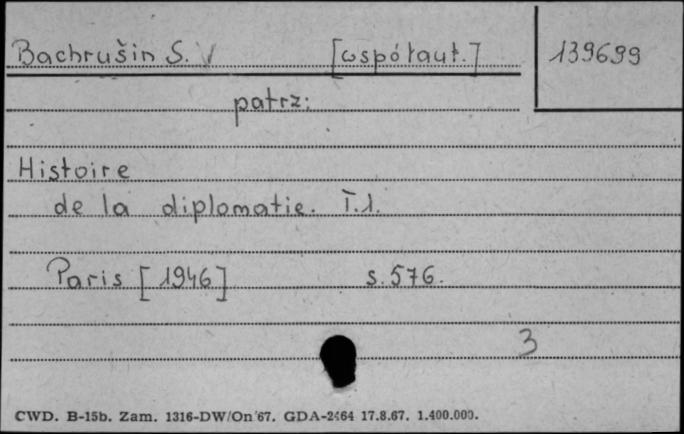 Bachrušin S. V [współaut.] 139699
patrz:
Histoire
de la diplomatie. T.1.
Paris [1946] s. 576.
3
CWD. B-15b. Zam. 1316-DW/On 67. GDA-2464 17.8.67. 1.400.000.